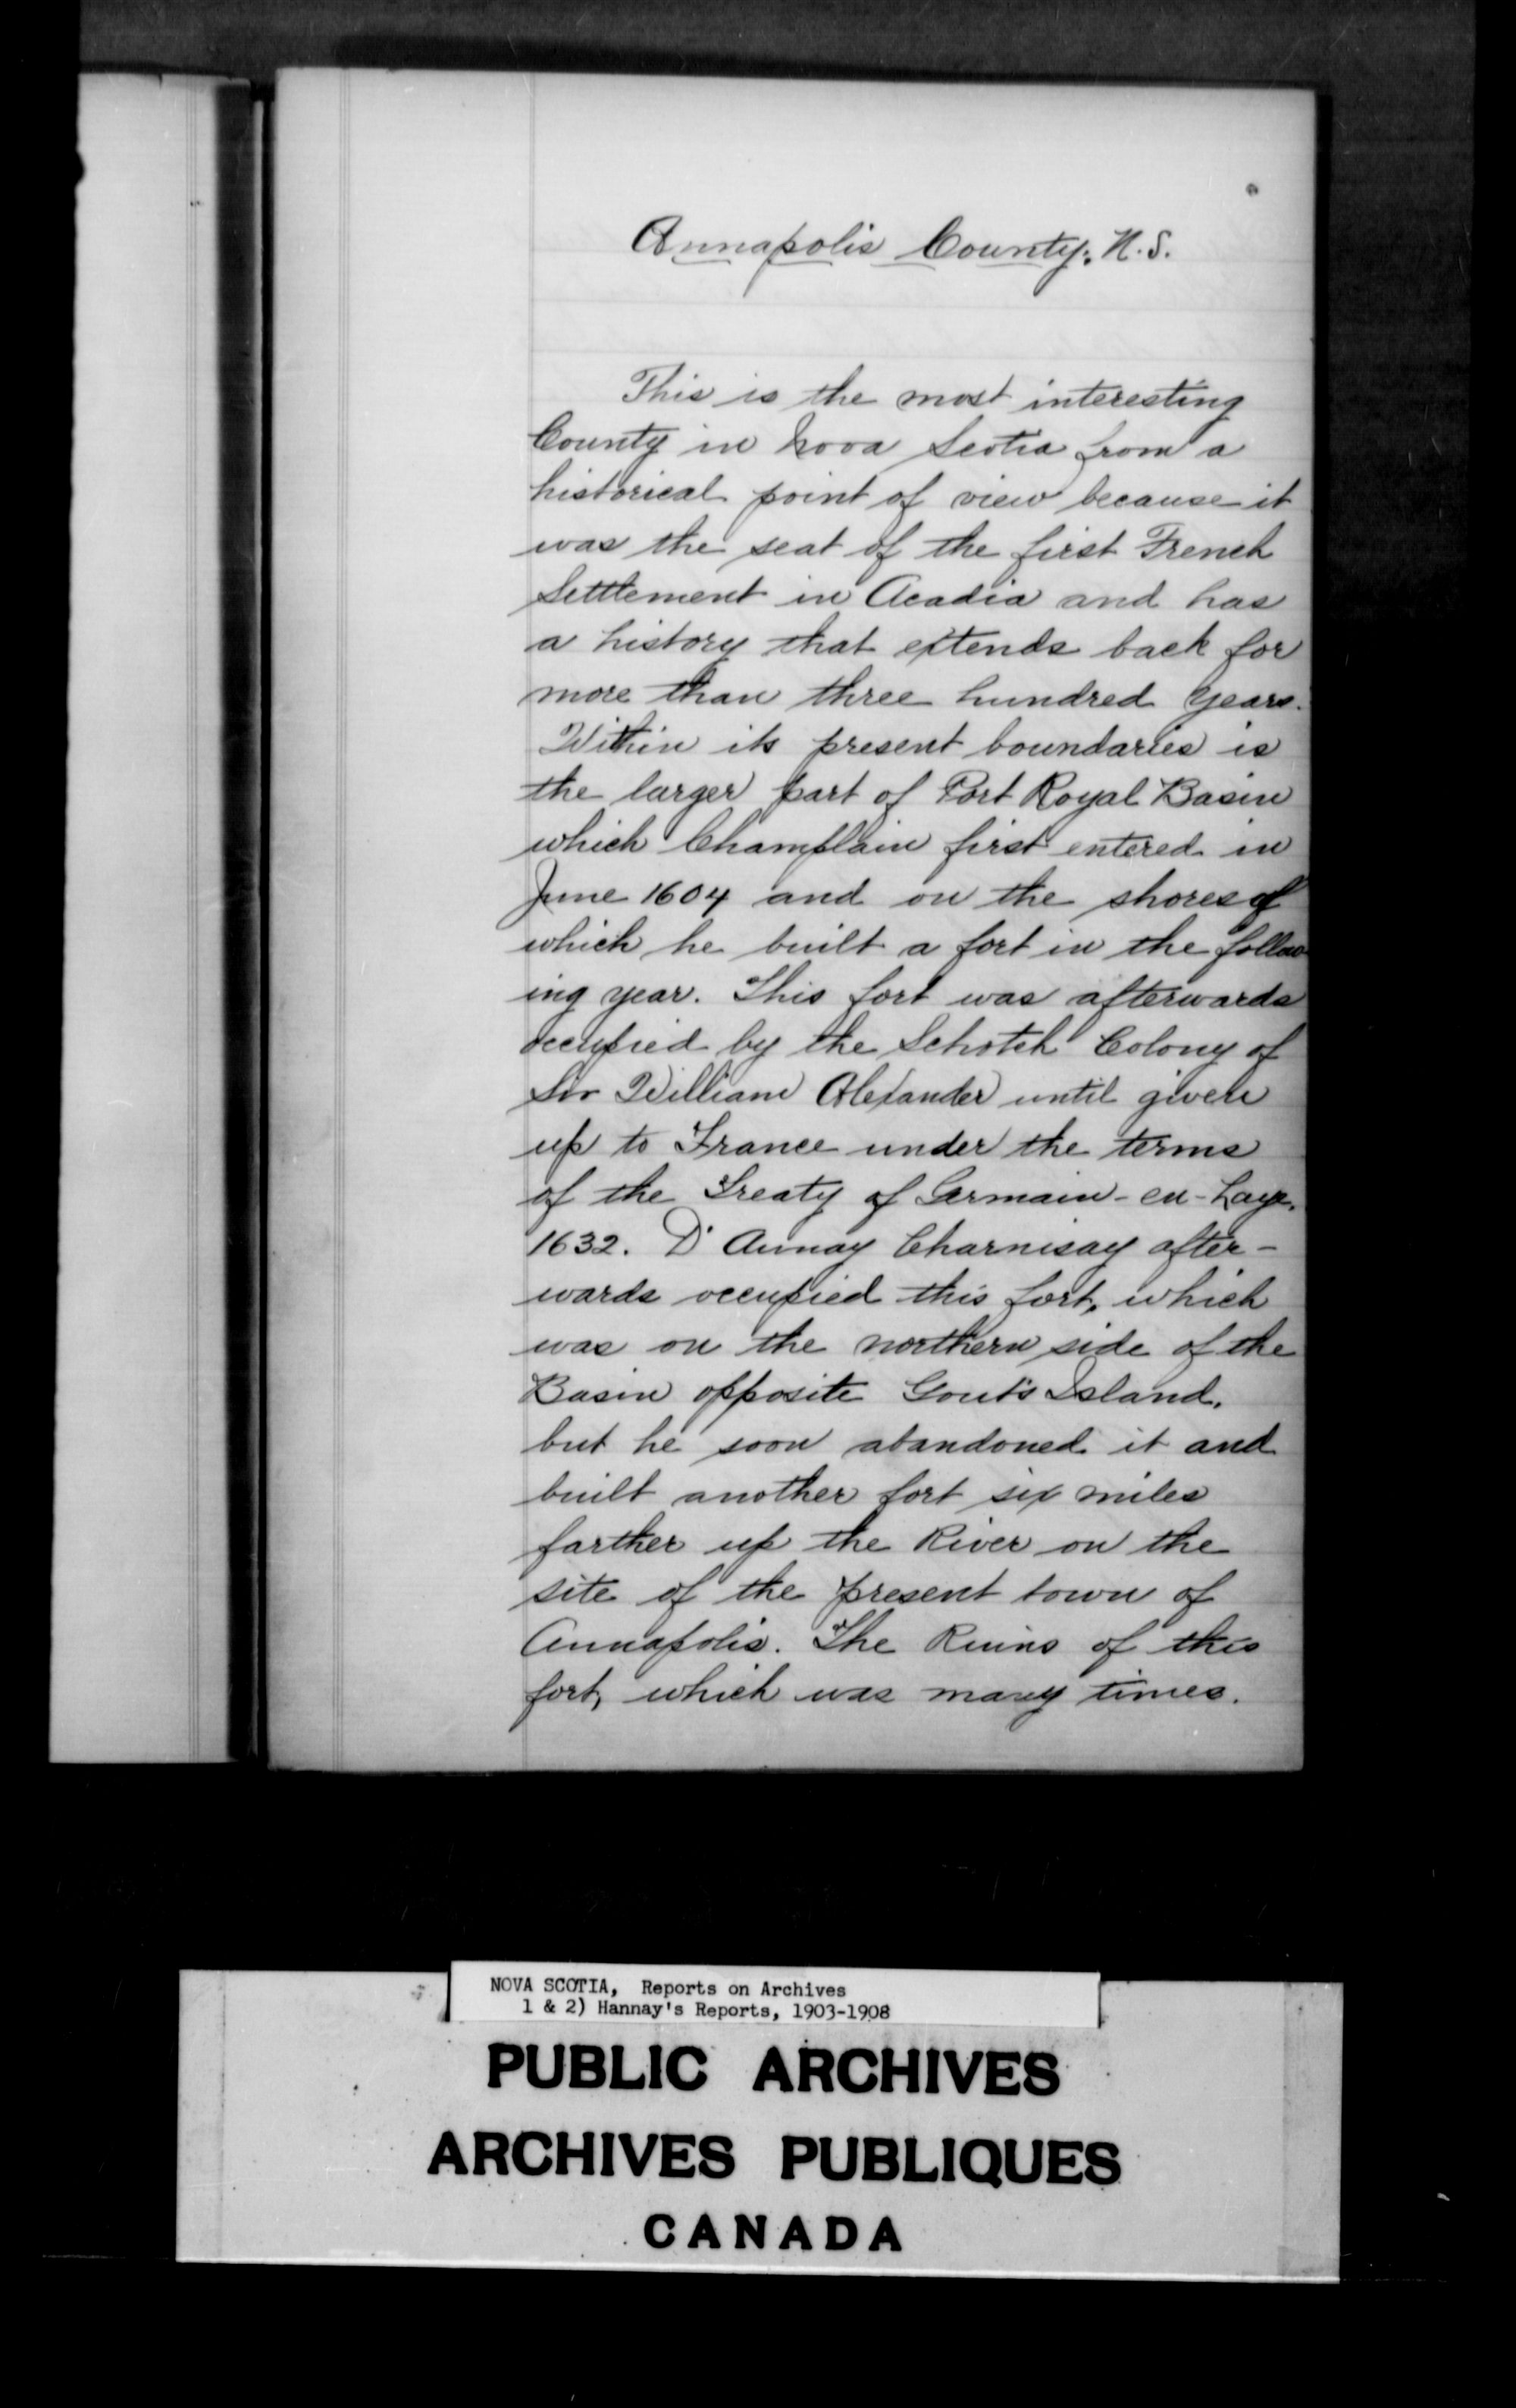 Annapolis County, N.S.
This is the most interesting
County in Nova Scotia from a
historical point of view because it
was the seat of the first French
Settlement in Acadia and has
a history that extends back for
more than three hundred years.
Within its present boundaries is
the larger part of Port Royal Basin
which Champlain first entered in
June 1604 and on the shores of
which he built a fort in the follow
ing year. This fort was afterwards
occupied by the Schotch Colony of
Sir William Alexander until given
up to France under the terms
of the Treaty of Germain-en-Laye.
1632. D'Aunay Charnisay after-
wards occupied this fort, which
was on the northern side of the
Basin opposite Gout's Island,
but he soon abandoned it and
built another fort six miles
farther up the River on the
site of the present town of
Annapolis. The Ruins of this
fort, which was many times.
NOVA SCOTIA, Reports on Archives
1 & 2) Hannay's Reports, 1903-1908
PUBLIC ARCHIVES
ARCHIVES PUBLIQUES
CANADA